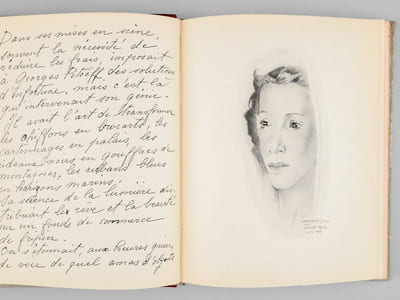 Dans ses mises en scène,
souvent la nécessité de
réduire les frais, imposait
à Georges Pitoëff des solutions
d'infortune, mais c'est là
qu'intervenait son génie.
Il avait l'art de transformer
les chiffons en brocarts, les
cartonnages en palais, les
rideaux noirs en gouffres de
montagnes, les rubans bleus
en horizons marins.
La science de la lumière dis-
tribuait le rêve et la beauté
sur un fonds de commerce
de fripier.
On s'étonnait, aux heures
de voir de quel amas d'objets